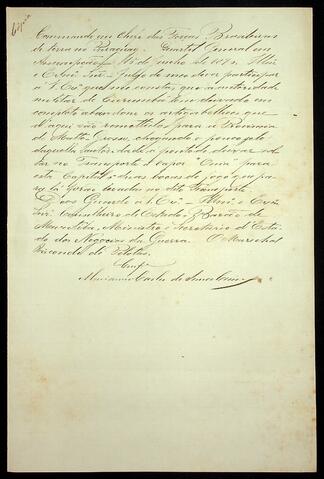 Copia
Commando em Chefe das Forças Brasileiras
de terra no Paraguay. Quartel General em
Assumpção, 15 de Junho de 1870. Illmo
e Exmo Snr. Julgo de meu dever participar
a V. Exª que me consta que a autoridade
militar de Corumbá tem deixado em
completo abandono os artigos bellicos que
d'aqui são remettidos para a Provincia
de Matto Grosso, chegando o pouco zelo
daquella autoridade a ponto de deixar vol-
tar no Transporte a vapor para
esta Capital duas bocas de fogo que pa-
ra lá forão levadas no dito Transporte.
Deos Guarde a V. Exª Illmo e Exmo
Snr. Conselheiro de Estado, Barão de
Muritiba, Ministro e Secretario d'Esta-
do dos Negocios da Guerra. O Marechal
Visconde de Pelotas.
Conf.e
Marianno Carlos de Souza Corrêa